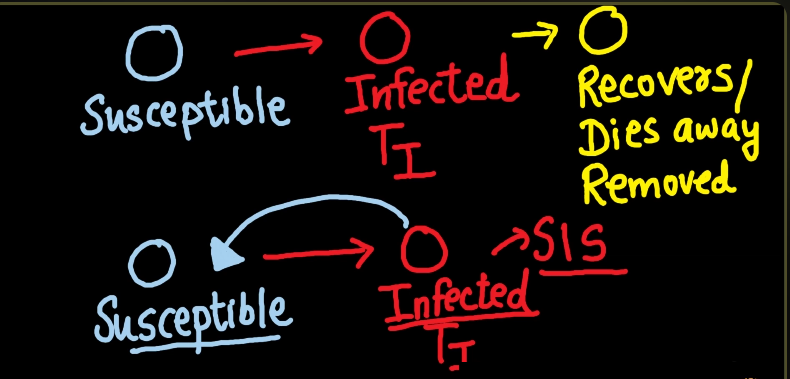 Susceptible
Infected
T_I
Recovers/
Dies away
Removed
SIS
Susceptible
Infected
T_I